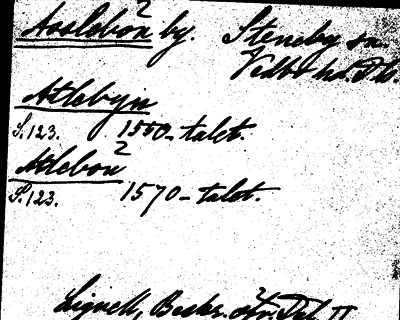 Asslebon² by. Steneby sn.
Vedbo hd. Dls.
Atlebyn
S. 123. 1550-talet.
Atlebon²
S. 123. 1570-talet.
Lignell, Beskr. öfv. Dal II